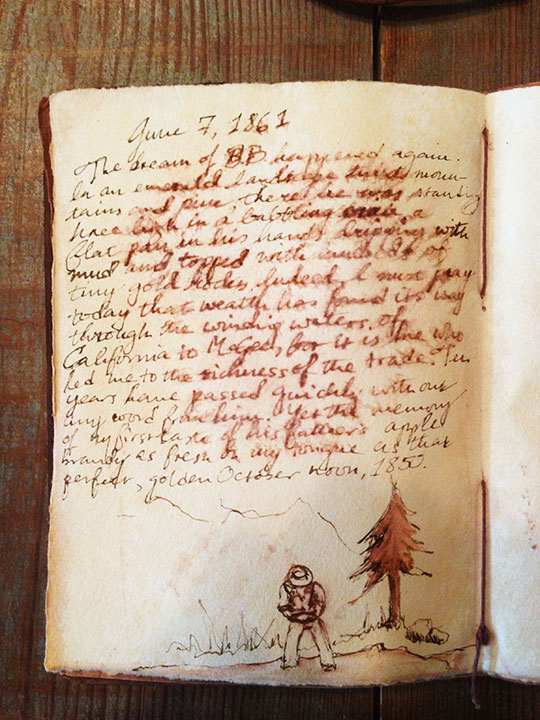 June 7, 1861
The dream of B.B. happened again.
In an emerald landscape mid moun-
tains and pine, there he was standing
knee high in a babbling a
flat pan in his hands dripping with
mud and topped with hundreds of
tiny gold Indeed, I must pray
to-day that wealth has found its way
through the winding waters of
California to McGees, for it is he who
led me to the richness of the trade. Ten
years have passed quickly without
any word from him. Yet the memory
of my first taste of his father's apple
brandy as fresh on my tongue as that
perfect, golden October noon, 1850.